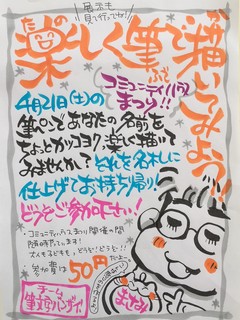 展示も
見て行ってネ!
楽しく筆で描いてみよう!
たの
ふで
コミュニティハウス
まつり!!
4月21日(土)の
筆ペンであなたの名前を
ちょっとカッコヨク、楽しく描いて
みませんか?それを名札に
仕上げてお持ち帰り!
どうぞご参加下さい!
・コミュニティハウスまつり開催の間
随時やってます!
大人も子どもも、どうぞどうぞ!!
・参加費は50円
でぃーす
チーム
筆文字バンザイ!
まさみ